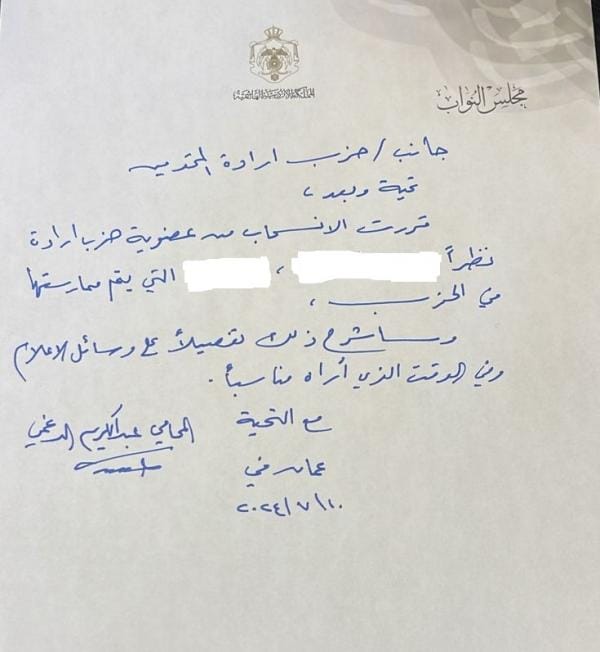 المملكة الأردنية الهاشمية
مجلس النواب
جانب / حزب ارادة المحترمين
تحية وبعد ،
قررت الانسحاب من عضوية حزب ارادة
نظراً ، التي يتم ممارستها
في الحزب ،
وسأشرح ذلك تفصيلاً على وسائل الاعلام
وفي الوقت الذي أراه مناسباً .
مع التحية
المحامي عبدالكريم الدغمي
عمان في
٢٠٢٤/٧/١٠